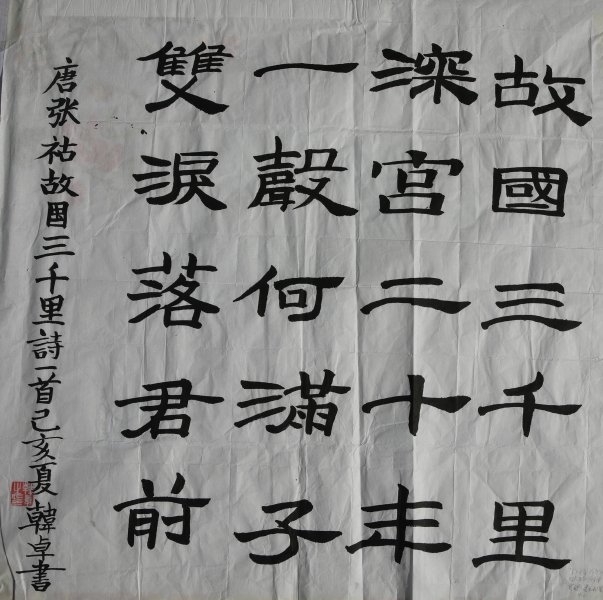 故國三千里
深宮二十年
一聲何滿子
雙淚落君前
唐张祜故國三千里詩一首己亥夏韓卓書